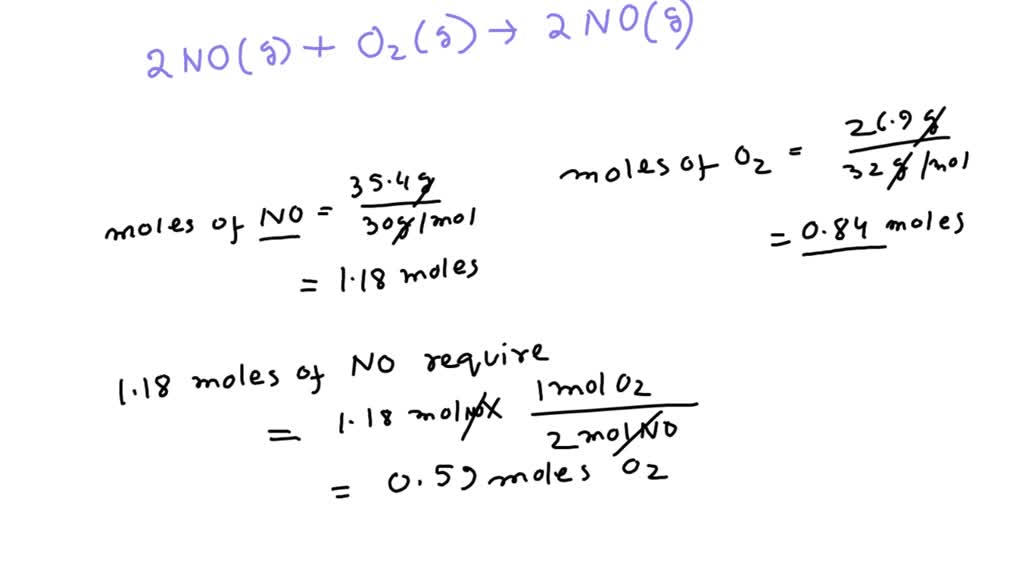 2NO(g) + O2(g) → 2NO(g)
moles of NO = 35.4g / 30g/mol
= 1.18 moles
moles of O2 = 26.9g / 32g/mol
= 0.84 moles
1.18 moles of NO require
= 1.18 mol NO x 1 mol O2 / 2 mol NO
= 0.59 moles O2